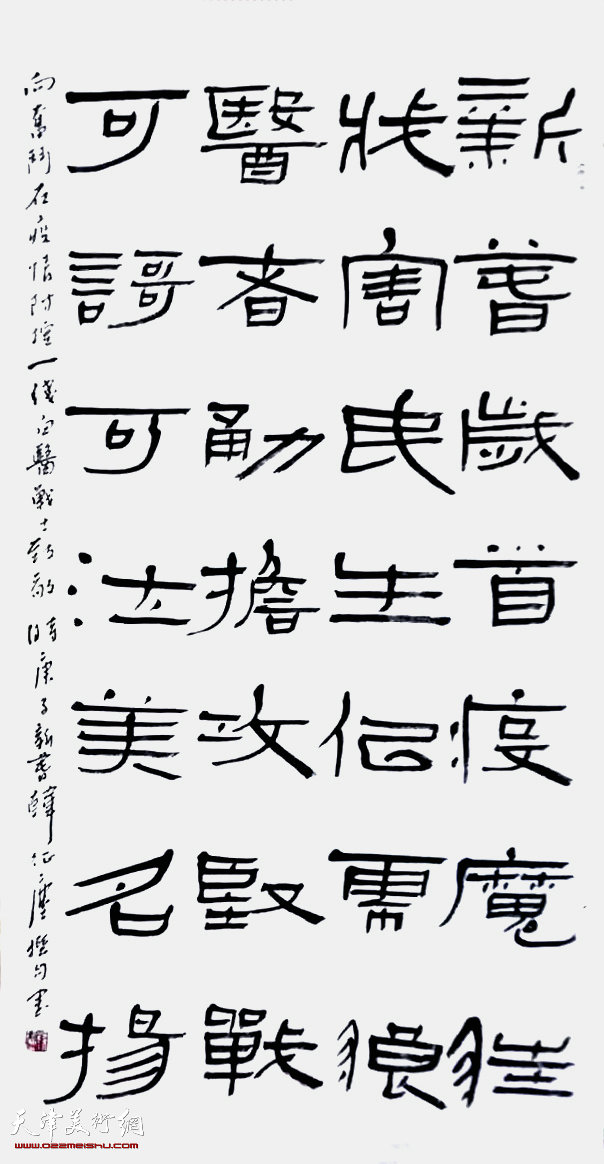 新萅歲首疫魔狂
戕害民生似需狼
醫者勇擔攻堅戰
可謌可泣美名揚
向奮鬥在疫情防控一綫白醫戰士致敬 時庚子新萅韓征塵撰句書
天津美術網
www.022meishu.com